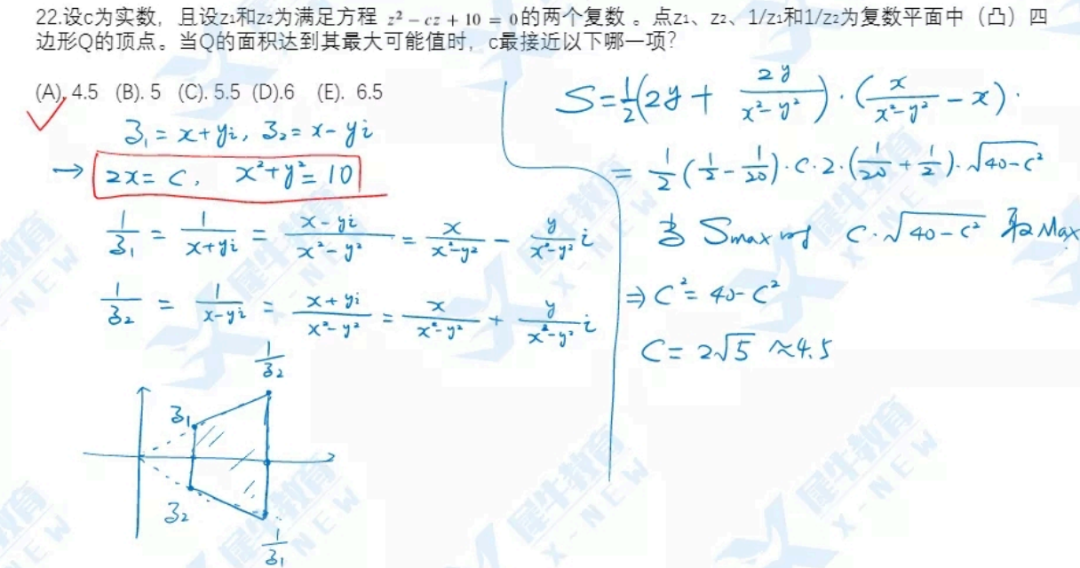 22.设c为实数，且设z₁和z₂为满足方程 z² − cz + 10 = 0的两个复数 。点z₁、z₂、1/z₁和1/z₂为复数平面中（凸）四
边形Q的顶点。当Q的面积达到其最大可能值时，c最接近以下哪一项？
(A). 4.5 (B). 5 (C). 5.5 (D).6 (E). 6.5
z₁ = x+yi, z₂ = x−yi
→ 2x = c, x²+y² = 10
1/z₁ = 1/(x+yi) = (x−yi)/(x²−y²) = x/(x²−y²) − y/(x²−y²) i
1/z₂ = 1/(x−yi) = (x+yi)/(x²−y²) = x/(x²−y²) + y/(x²−y²) i
1/z₂
z₁
z₂
1/z₁
S = 1/2(2y + 2y/(x²−y²)) · (x/(x²−y²) − x).
= 1/2 (1/2 − 1/20) · c · 2 · (1/20 + 1/2) · √(40−c²)
当 Smax 时 c·√(40−c²) 取Max
⇒ c² = 40−c²
c = 2√5 ≈4.5
犀牛教育
X-NEW